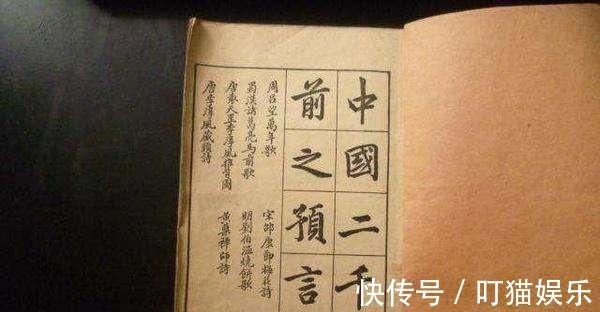 中國二千
前之預言
周呂望萬年歌
蜀漢諸葛亮馬前歌
唐袁天罡李淳風推背圖
唐李淳風藏頭詩
宋邵康節梅花詩
明劉伯溫燒餅歌
黃蘗禪師詩
快传号 / 叮猫娱乐